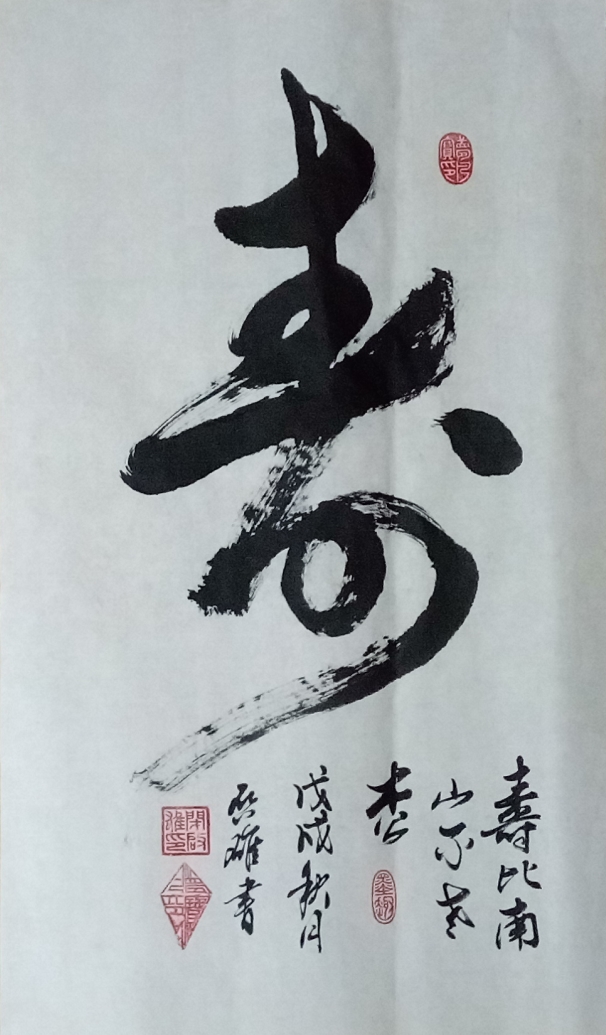 寿
壽比南
山不老
松
戊戌秋月
启雄書